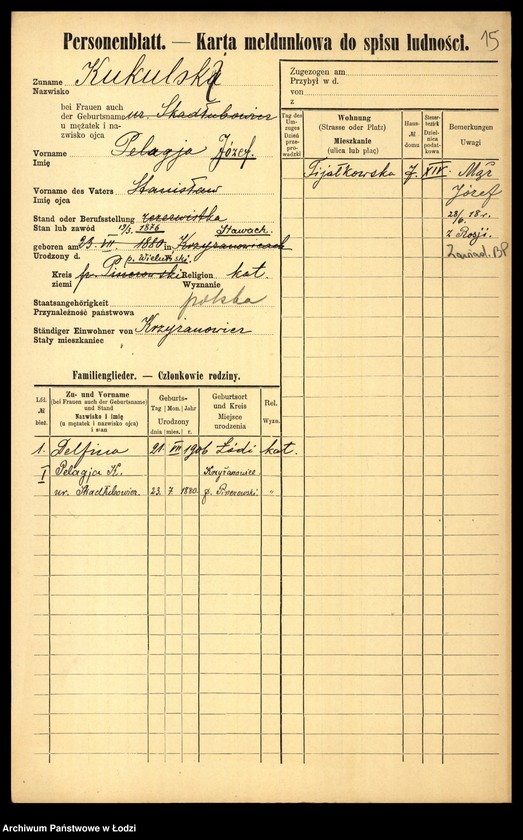 15
Personenblatt. — Karta meldunkowa do spisu ludności.
Zuname Kukulski
Nazwisko
bei Frauen auch
der Geburtsname ur. Skadłubowicz
u mężatek i na-
zwisko ojca
Vorname Pelagja Józef.
Imię
Vorname des Vaters Stanisław
Imię ojca
Stand oder Berufsstellung rezerwistka
Stan lub zawód 19/3. 1876 Stawach.
geboren am 23. VII. 1880 in Krzyżanowicach
Urodzony d. p. Wieluński.
Kreis p. Pinczowski Religion kat.
ziemi Wyznanie
Staatsangehörigkeit polska
Przynależność państwowa
Ständiger Einwohner von Krzyżanowice
Stały mieszkaniec
Zugezogen am
Przybył w d.
von
z
Tag des Um-zuges Dzień prze-prowadzki
Wohnung (Strasse oder Platz) Mieszkanie (ulica lub plac)
Haus- № domu
Steuer-bezirk Dzielnica podat-kowa
Bemerkungen Uwagi
Fijałkowska 7. XIX. Mąż
Józef
28/6. 18 r.
z Rosji.
Zawiad. BP
Familienglieder. — Członkowie rodziny.
Lfd. № bież.
Zu- und Vorname (bei Frauen auch der Geburtsname) und Stand Nazwisko i imię (u mężatek i nazwisko ojca) i stan
Geburts- Tag | Mon. | Jahr Urodzony dnia | mies. | r.
Geburtsort und Kreis Miejsce urodzenia
Rel. Wyzn.
1. Delfina 21 VII 1906 Łódź kat.
I Pelagja K. Krzyżanowice
ur. Skadłubowicz. 23. 7 1880. p. Pinczowski. "
Archiwum Państwowe w Łodzi